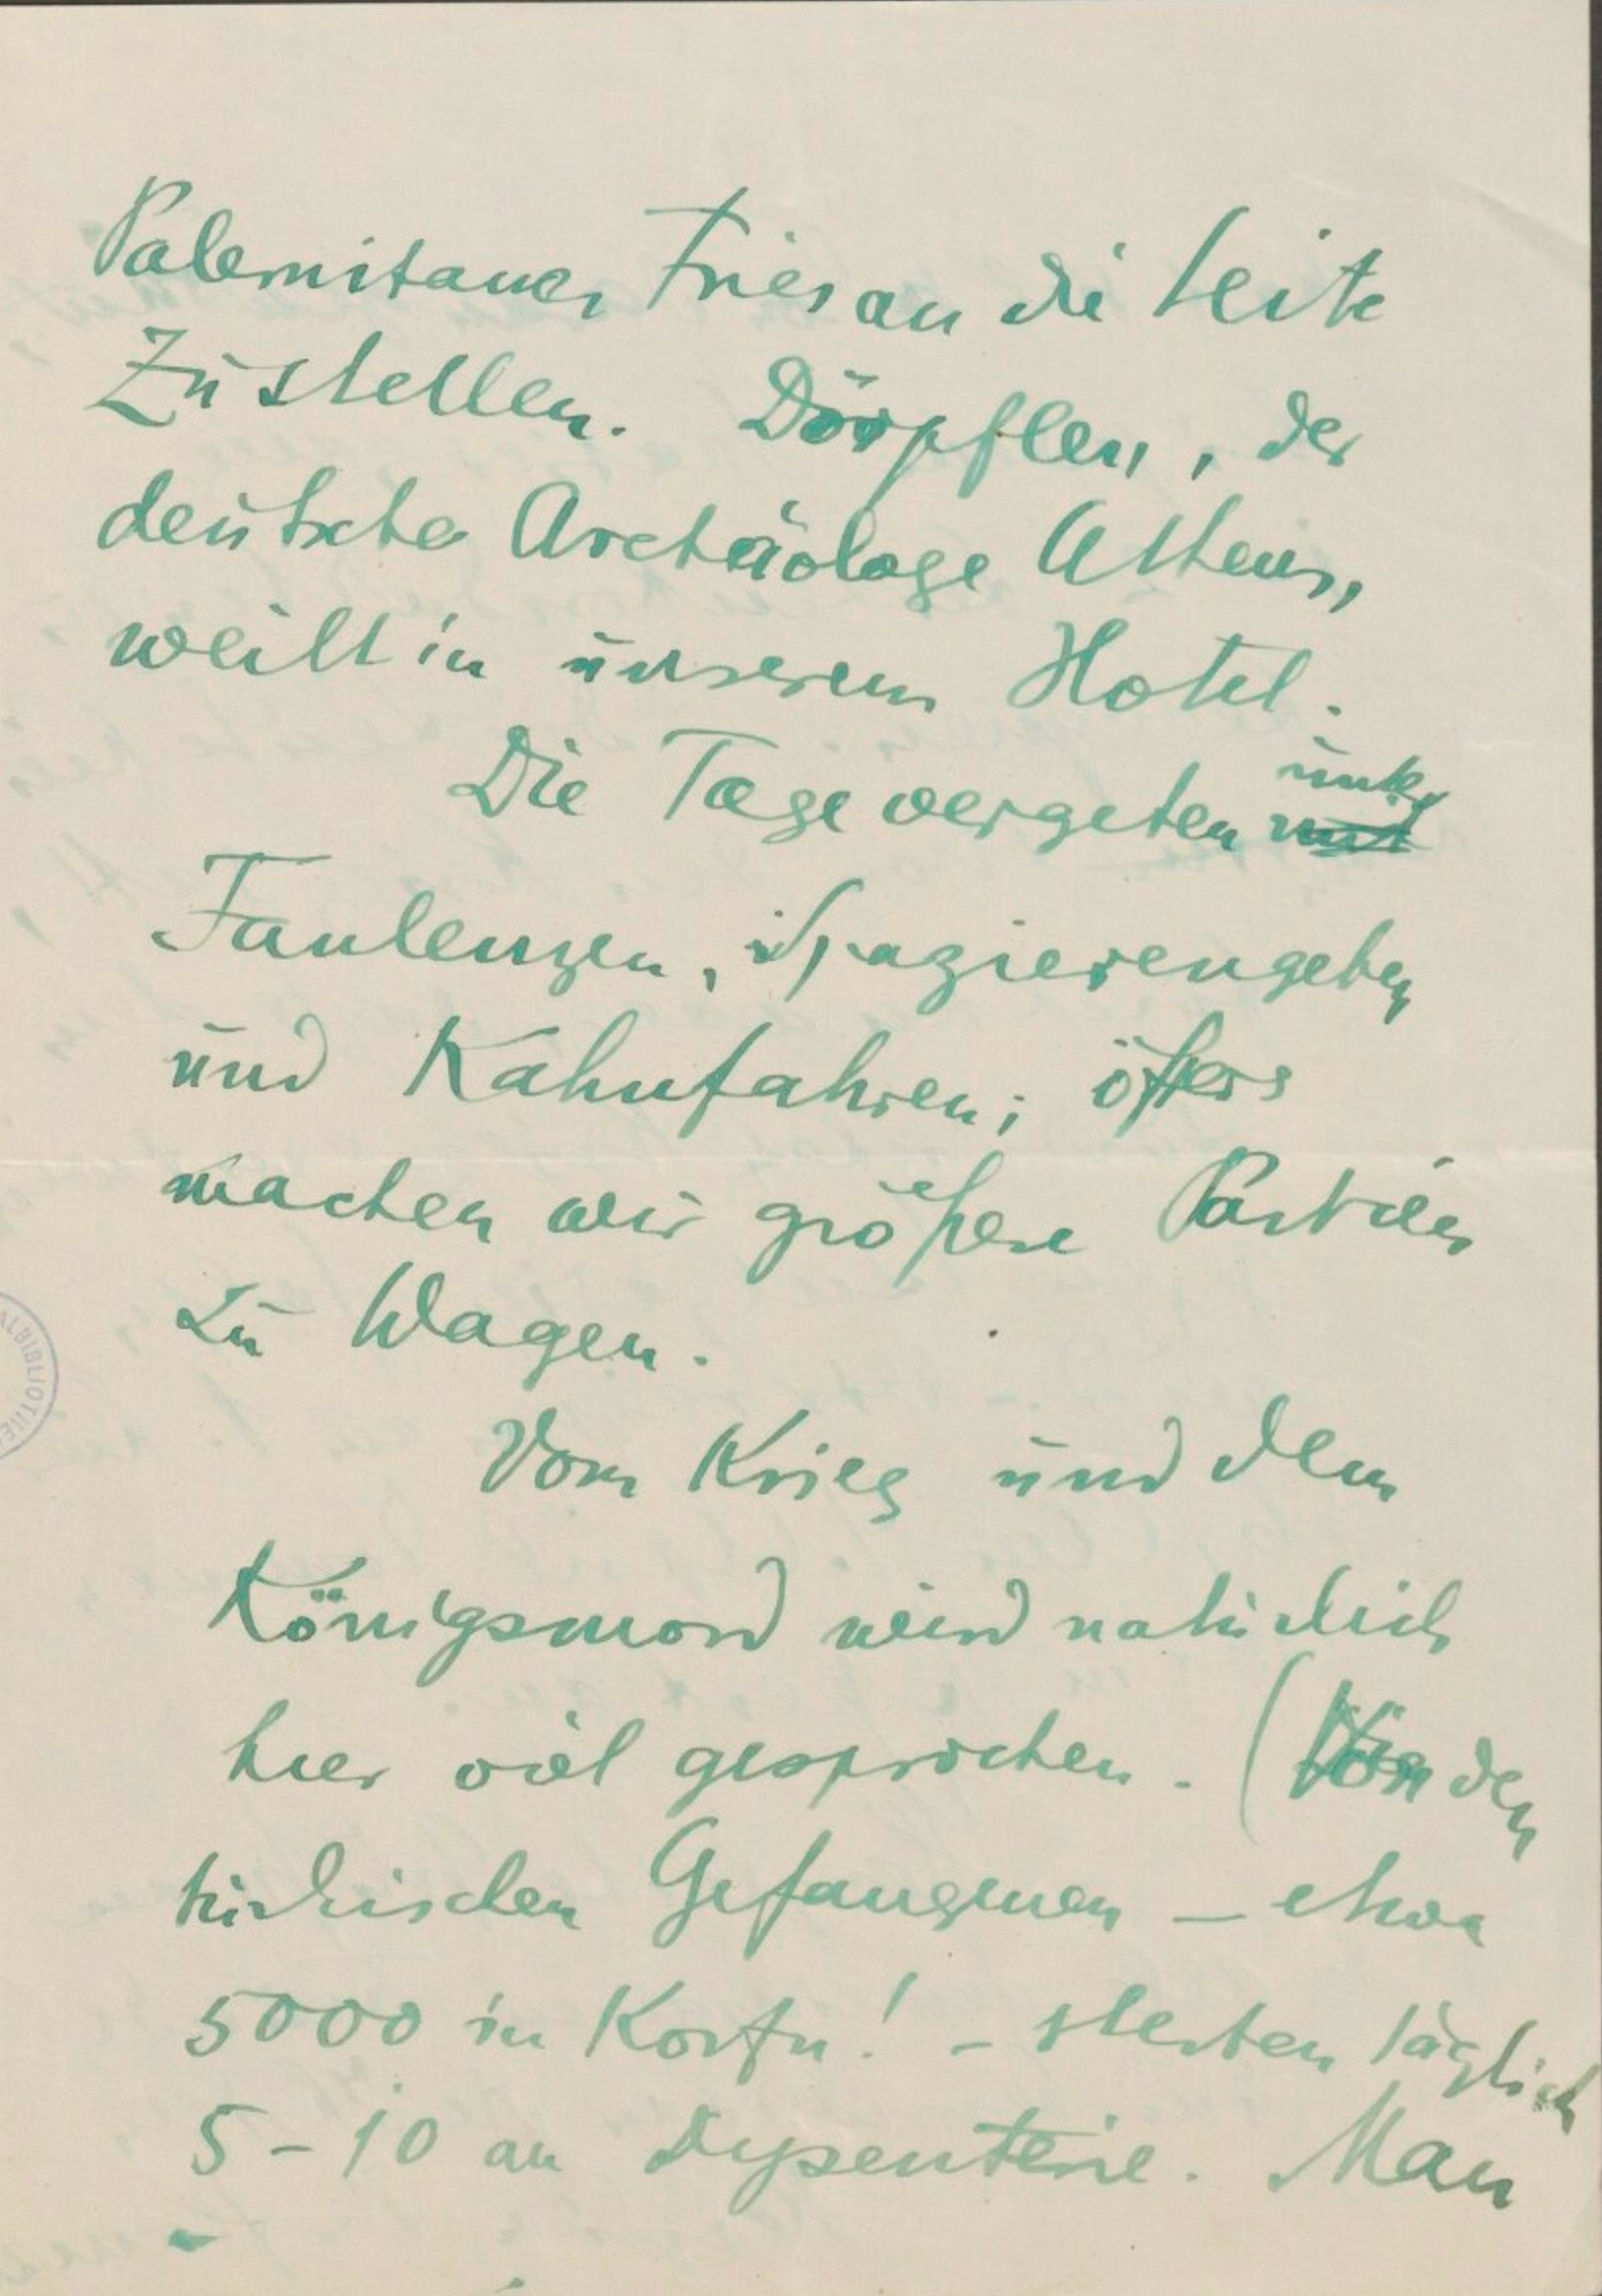 Palermitaner Fries an die Seite
zu stellen. Dörpflen, der
deutsche Archäologe Athens,
weilt in unserem Hotel.
Die Tage vergehen unter
Faulenzen, Spazierengehen
und Kahnfahren; öfters
machen wir größere Partien
zu Wagen.
Vom Krieg und dem
Königsmord wird natürlich
hier viel gesprochen. (Von den
türkischen Gefangenen – etwa
5000 in Korfu! – sterben täglich
5–10 an Dysenterie. Man
ALBIBLIOTHE